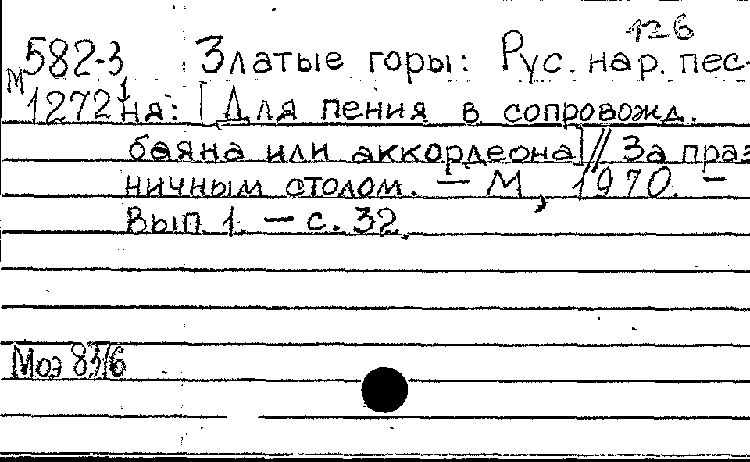 126
М 582-3 Златые горы: Рус. нар. пес-
1272 ня: [Для пения в сопровожд.
баяна или аккордеона] // За праз
ничным столом. — М, 1970. —
Вып 1. — с. 32.
Моэ